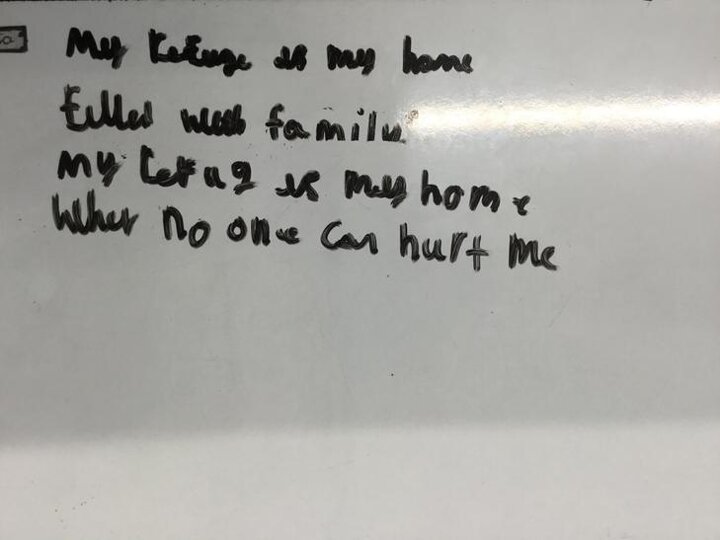 My Refuge is my home
filled with family
My refug is my home
Wher no one can hurt me